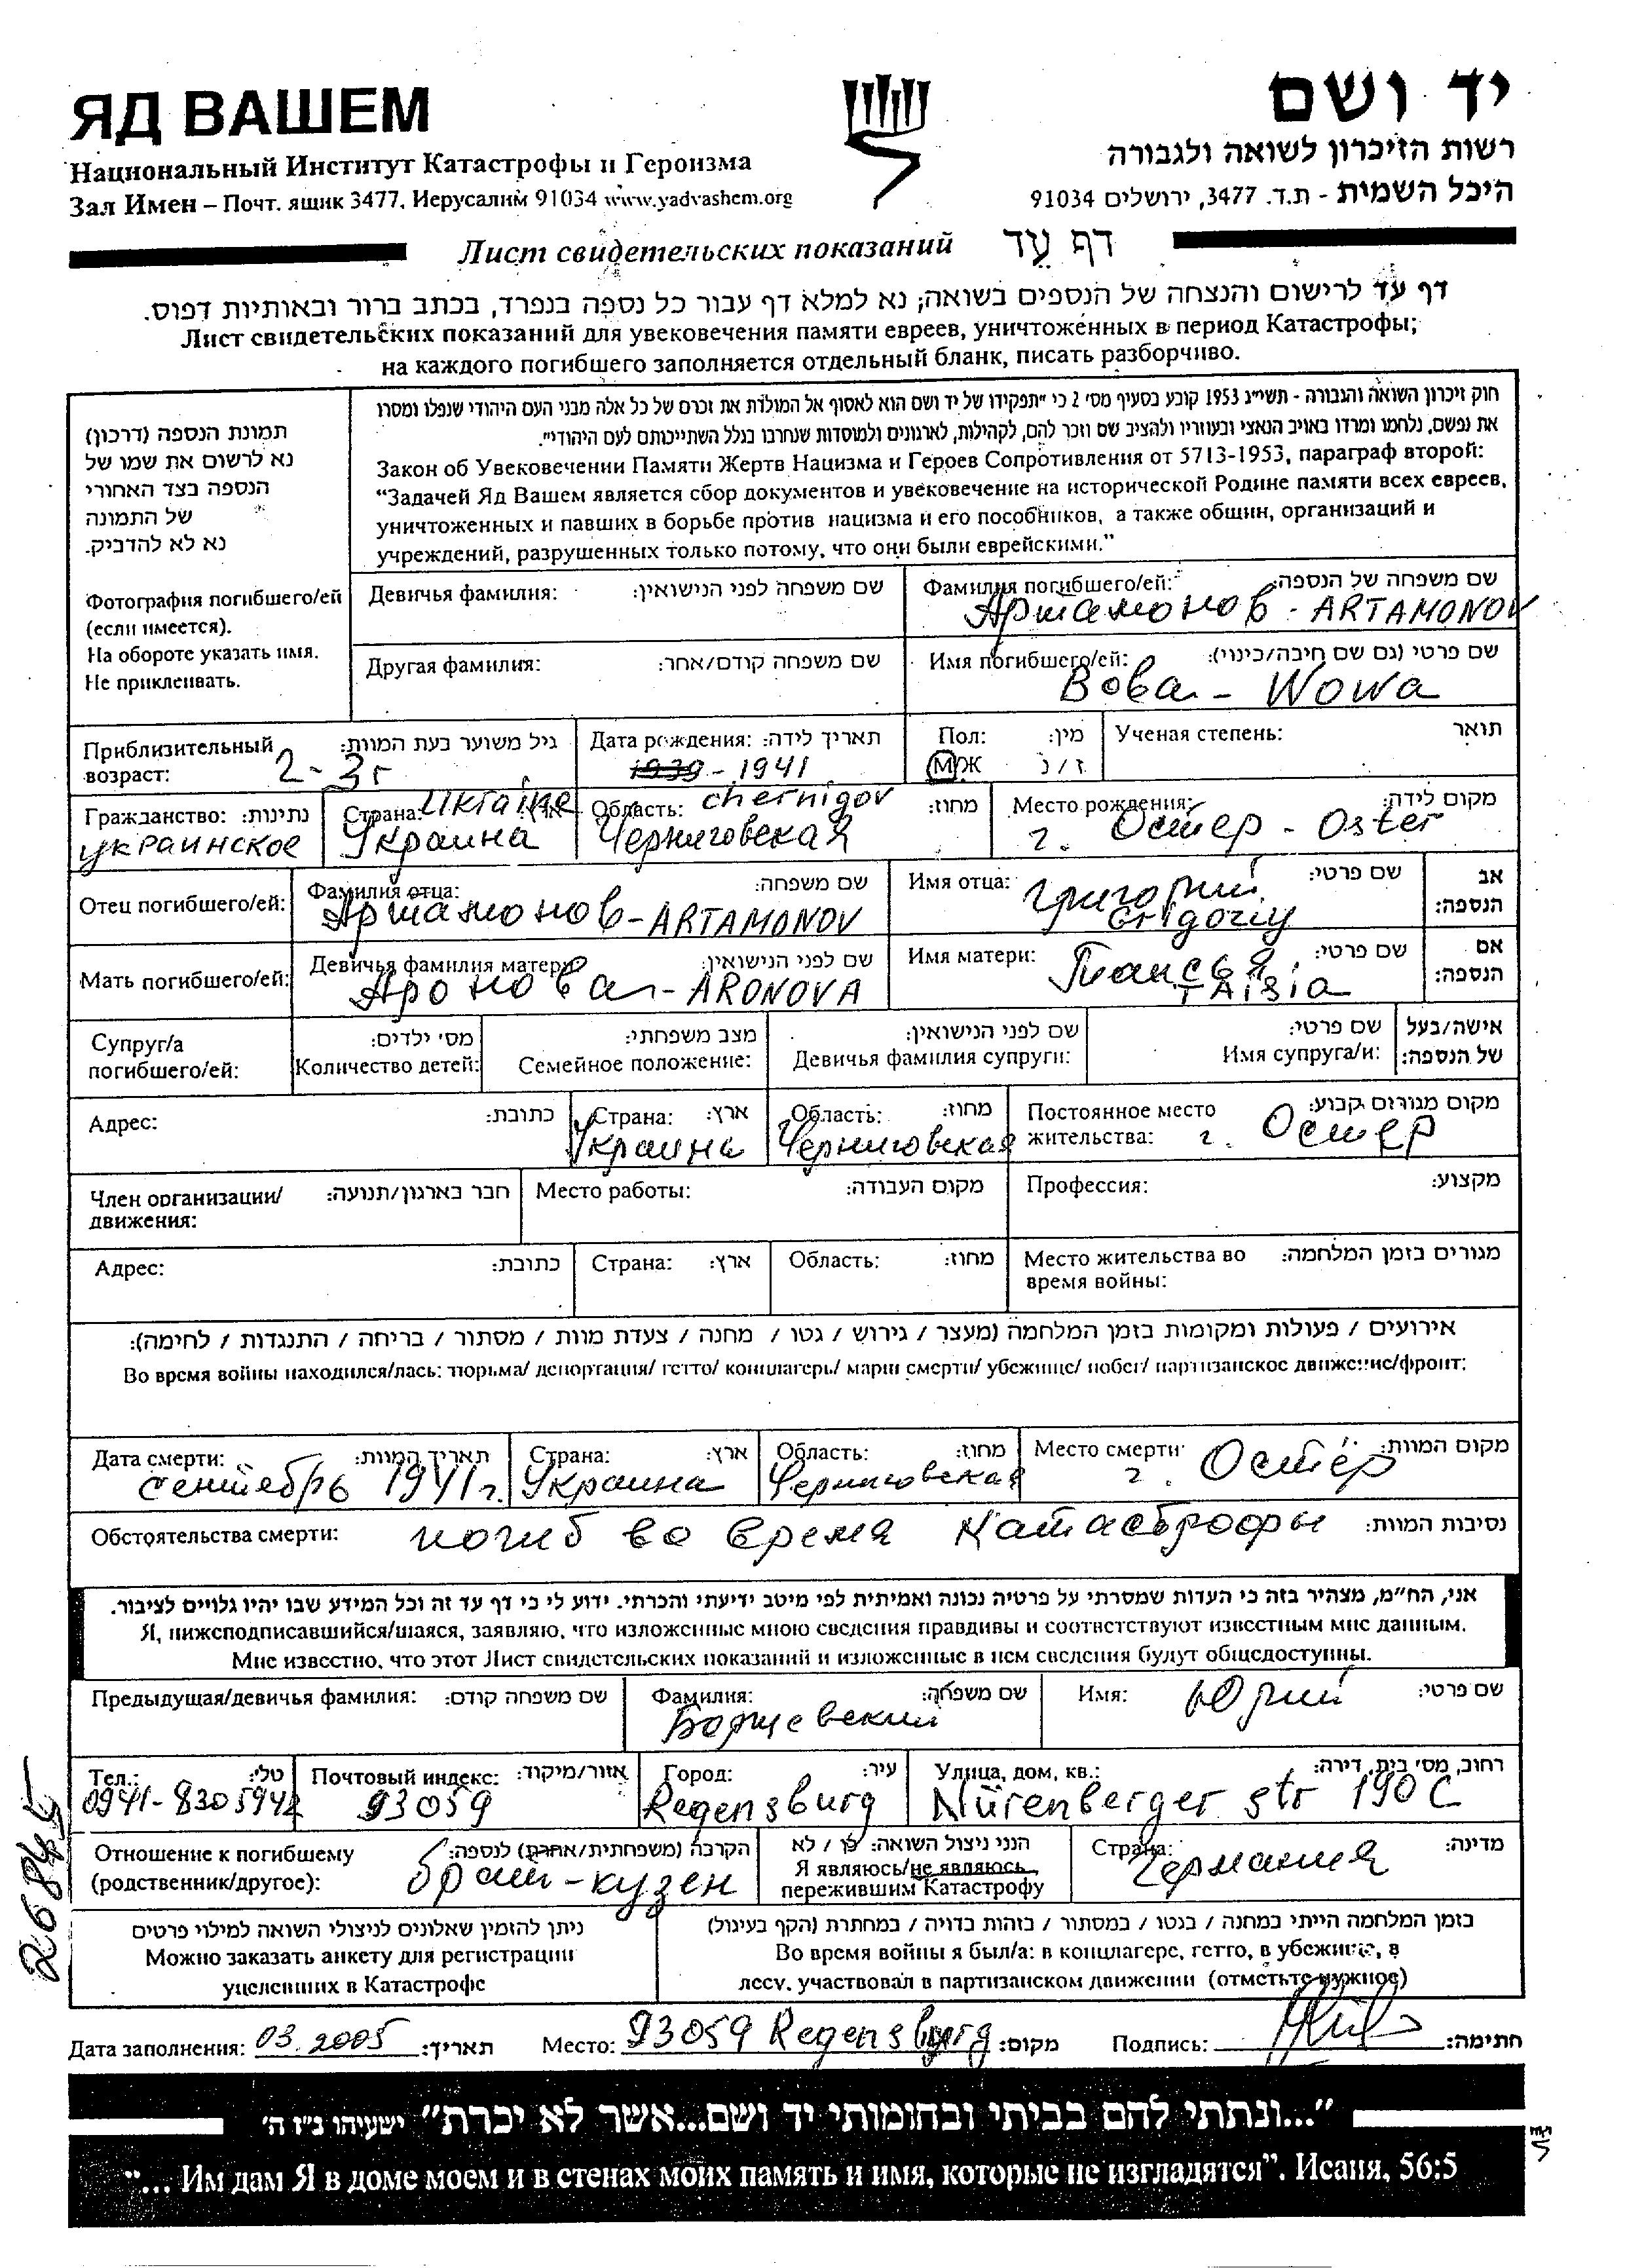 ЯД ВАШЕМ
Национальный Институт Катастрофы и Героизма
Зал Имен – Почт. ящик 3477, Иерусалим 91034 www.yadvashem.org
יד ושם
רשות הזיכרון לשואה ולגבורה
היכל השמות - ת.ד. 3477, ירושלים 91034
Лист свидетельских показаний דף עֵד
דף עֵד לרישום והנצחה של הנספים בשואה; נא למלא דף עבור כל נספה בנפרד, בכתב ברור ובאותיות דפוס.
Лист свидетельских показаний для увековечения памяти евреев, уничтоженных в период Катастрофы;
на каждого погибшего заполняется отдельный бланк, писать разборчиво.
תמונת הנספה (דרכון)
נא לרשום את שמו של
הנספה בצד האחורי
של התמונה
נא לא להדביק.
Фотография погибшего/ей
(если имеется).
На обороте указать имя.
Не приклеивать.
חוק זיכרון השואה והגבורה - תשי"ג 1953 קובע בסעיף מס' 2 כי "תפקידו של יד ושם הוא לאסוף אל המולדת את זכרם של כל אלה מבני העם היהודי שנפלו ומסרו
את נפשם, נלחמו ומרדו באויב הנאצי ובעוזריו ולהציב שם וזכר להם, לקהילות, לארגונים ולמוסדות שנחרבו בגלל השתייכותם לעם היהודי".
Закон об Увековечении Памяти Жертв Нацизма и Героев Сопротивления от 5713-1953, параграф второй:
"Задачей Яд Вашем является сбор документов и увековечение на исторической Родине памяти всех евреев,
уничтоженных и павших в борьбе против нацизма и его пособников, а также общин, организаций и
учреждений, разрушенных только потому, что они были еврейскими."
Девичья фамилия: שם משפחה לפני הנישואין:
Фамилия погибшего/ей: שם משפחה של הנספה:
Артамонов - ARTAMONOV
Другая фамилия: שם משפחה קודם/אחר:
Имя погибшего/ей: שם פרטי (גם שם חיבה/כינוי):
Вова - Wowa
Приблизительный возраст: גיל משוער בעת המוות:
2-3г
Дата рождения: תאריך לידה:
1939 - 1941
Пол: מין:
М/Ж ז / נ
Ученая степень: תואר
Гражданство: נתינות:
украинское
Страна: ארץ: Ukraine
Украина
Область: מחוז: chernigov
Черниговская
Место рождения: מקום לידה:
г. Остер - Oster
Отец погибшего/ей:
Фамилия отца: שם משפחה:
Артамонов - ARTAMONOV
Имя отца: שם פרטי:
Григорий
Grigoriy
אב
הנספה:
Мать погибшего/ей:
Девичья фамилия матери: שם לפני הנישואין:
Аронова - ARONOVA
Имя матери: שם פרטי:
Таисья
TAISIA
אם
הנספה:
Супруг/а
погибшего/ей:
מס' ילדים:
Количество детей:
מצב משפחתי:
Семейное положение:
שם לפני הנישואין:
Девичья фамилия супруги:
שם פרטי:
Имя супруга/и:
אישה/בעל
של הנספה:
Адрес: כתובת:
Страна: ארץ:
Украина
Область: מחוז:
Черниговская
Постоянное место жительства: מקום מגורים קבוע:
г. Остер
Член организации/
движения: חבר בארגון/תנועה:
Место работы: מקום העבודה:
Профессия: מקצוע:
Адрес: כתובת:
Страна: ארץ:
Область: מחוז:
Место жительства во
время войны: מגורים בזמן המלחמה:
אירועים / פעולות ומקומות בזמן המלחמה (מעצר / גירוש / גטו / מחנה / צעדת מוות / מסתור / בריחה / התנגדות / לחימה):
Во время войны находился/лась: тюрьма/ депортация/ гетто/ концлагерь/ марш смерти/ убежище/ побег/ партизанское движение/фронт:
Дата смерти: תאריך המוות:
сентябрь 1941г.
Страна: ארץ:
Украина
Область: מחוז:
Черниговская
Место смерти: מקום המוות:
г. Остёр
Обстоятельства смерти: погиб во время Катастрофы נסיבות המוות:
אני, הח"מ, מצהיר בזה כי העדות שמסרתי על פרטיה נכונה ואמיתית לפי מיטב ידיעתי והכרתי. ידוע לי כי דף עד זה וכל המידע שבו יהיו גלויים לציבור.
Я, нижеподписавшийся/шаяся, заявляю, что изложенные мною сведения правдивы и соответствуют известным мне данным.
Мне известно, что этот Лист свидетельских показаний и изложенные в нем сведения будут общедоступны.
Предыдущая/девичья фамилия: שם משפחה קודם:
Фамилия: שם משפחה:
Борщевский
Имя: שם פרטי:
Юрий
Тел.: טל':
0941-8305942
Почтовый индекс: אזור/מיקוד:
93059
Город: עיר:
Regensburg
Улица, дом, кв.: רחוב, מס' בית, דירה:
Nürenberger str 190C
Отношение к погибшему
(родственник/другое): הקרבה (משפחתית/אחרת) לנספה:
брат-кузен
הנני ניצול השואה: כן / לא
Я являюсь/не являюсь
пережившим Катастрофу
Страна: מדינה:
Германия
ניתן להזמין שאלונים לניצולי השואה למילוי פרטים
Можно заказать анкету для регистрации
уцелевших в Катастрофе
בזמן המלחמה הייתי במחנה / בגטו / במסתור / בזהות בדויה / במחתרת (הקף בעיגול)
Во время войны я был/а: в концлагере, гетто, в убежище, в
лесу, участвовал в партизанском движении (отметьте нужное)
26845
Дата заполнения: 03.2005 תאריך: Место: 93059 Regensburg מקום: Подпись: חתימה:
"...ונתתי להם בביתי ובחומותי יד ושם...אשר לא יכרת" ישעיהו נ"ו ה'
"... Им дам Я в доме моем и в стенах моих память и имя, которые не изгладятся". Исаия, 56:5